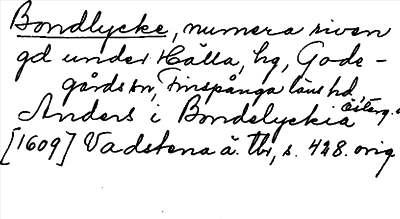 Bondlycke, numera riven
gd under Hälla, hg, Gode-
gårds sn, Finspånga läns hd
Österg.
Anders i Bondelyckia
[1609] Vadstena ä. Tbr, s. 428. orig